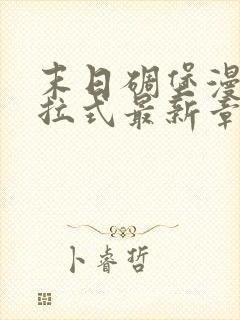 末日碉堡漫
拉式最新章
卜睿哲